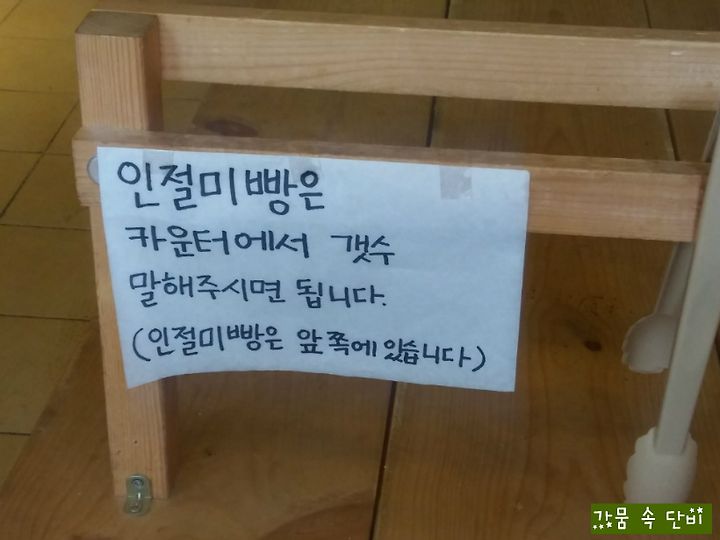 인절미빵은
카운터에서 갯수
말해주시면 됩니다.
(인절미빵은 앞쪽에 있습니다)
가뭄 속 단비